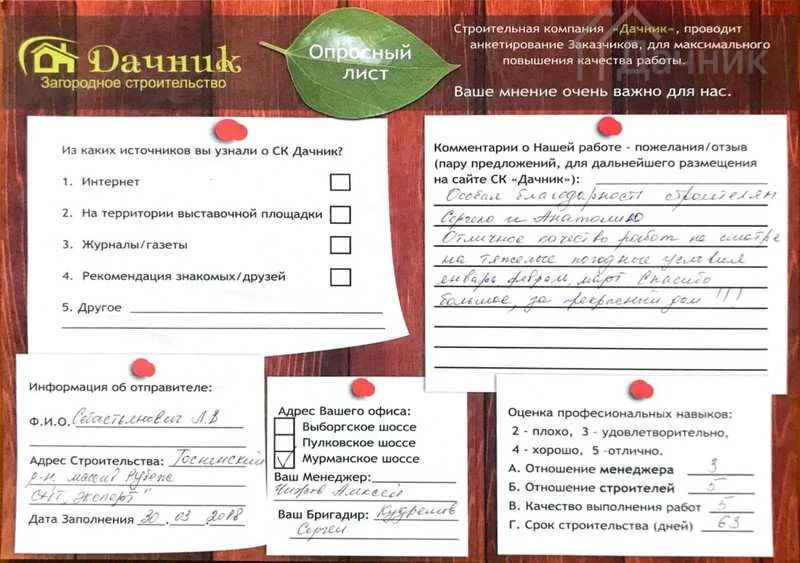 Дачник
Загородное строительство
Опросный
лист
Строительная компания «Дачник», проводит
анкетирование Заказчиков, для максимального
повышения качества работы.
Ваше мнение очень важно для нас.
Дачник
Из каких источников вы узнали о СК Дачник?
1. Интернет
2. На территории выставочной площадки
3. Журналы/газеты
4. Рекомендация знакомых/друзей
5. Другое
Комментарии о Нашей работе - пожелания/отзыв
(пару предложений, для дальнейшего размещения
на сайте СК «Дачник»):
Особая благодарность строителям
Сергею и Анатолию
Отличное качество работ не смотря
на тяжелые погодные условия
январь феврал, март Спасибо
большое, за прекрасный дом !!!
Информация об отправителе:
Ф.И.О. Себастьянович Л.В
Адрес Строительства: Тосненский
р-н. массив Рубеж
СНТ, Эксперт"
Дата Заполнения 30 . 03 . 2018
Адрес Вашего офиса:
Выборгское шоссе
Пулковское шоссе
Мурманское шоссе
Ваш Менеджер:
Алексей
Ваш Бригадир:
Сергей
Оценка професиональных навыков:
2 - плохо, 3 - удовлетворительно,
4 - хорошо, 5 -отлично.
А. Отношение менеджера 3
Б. Отношение строителей 5
В. Качество выполнения работ 5
Г. Срок строительства (дней) 63